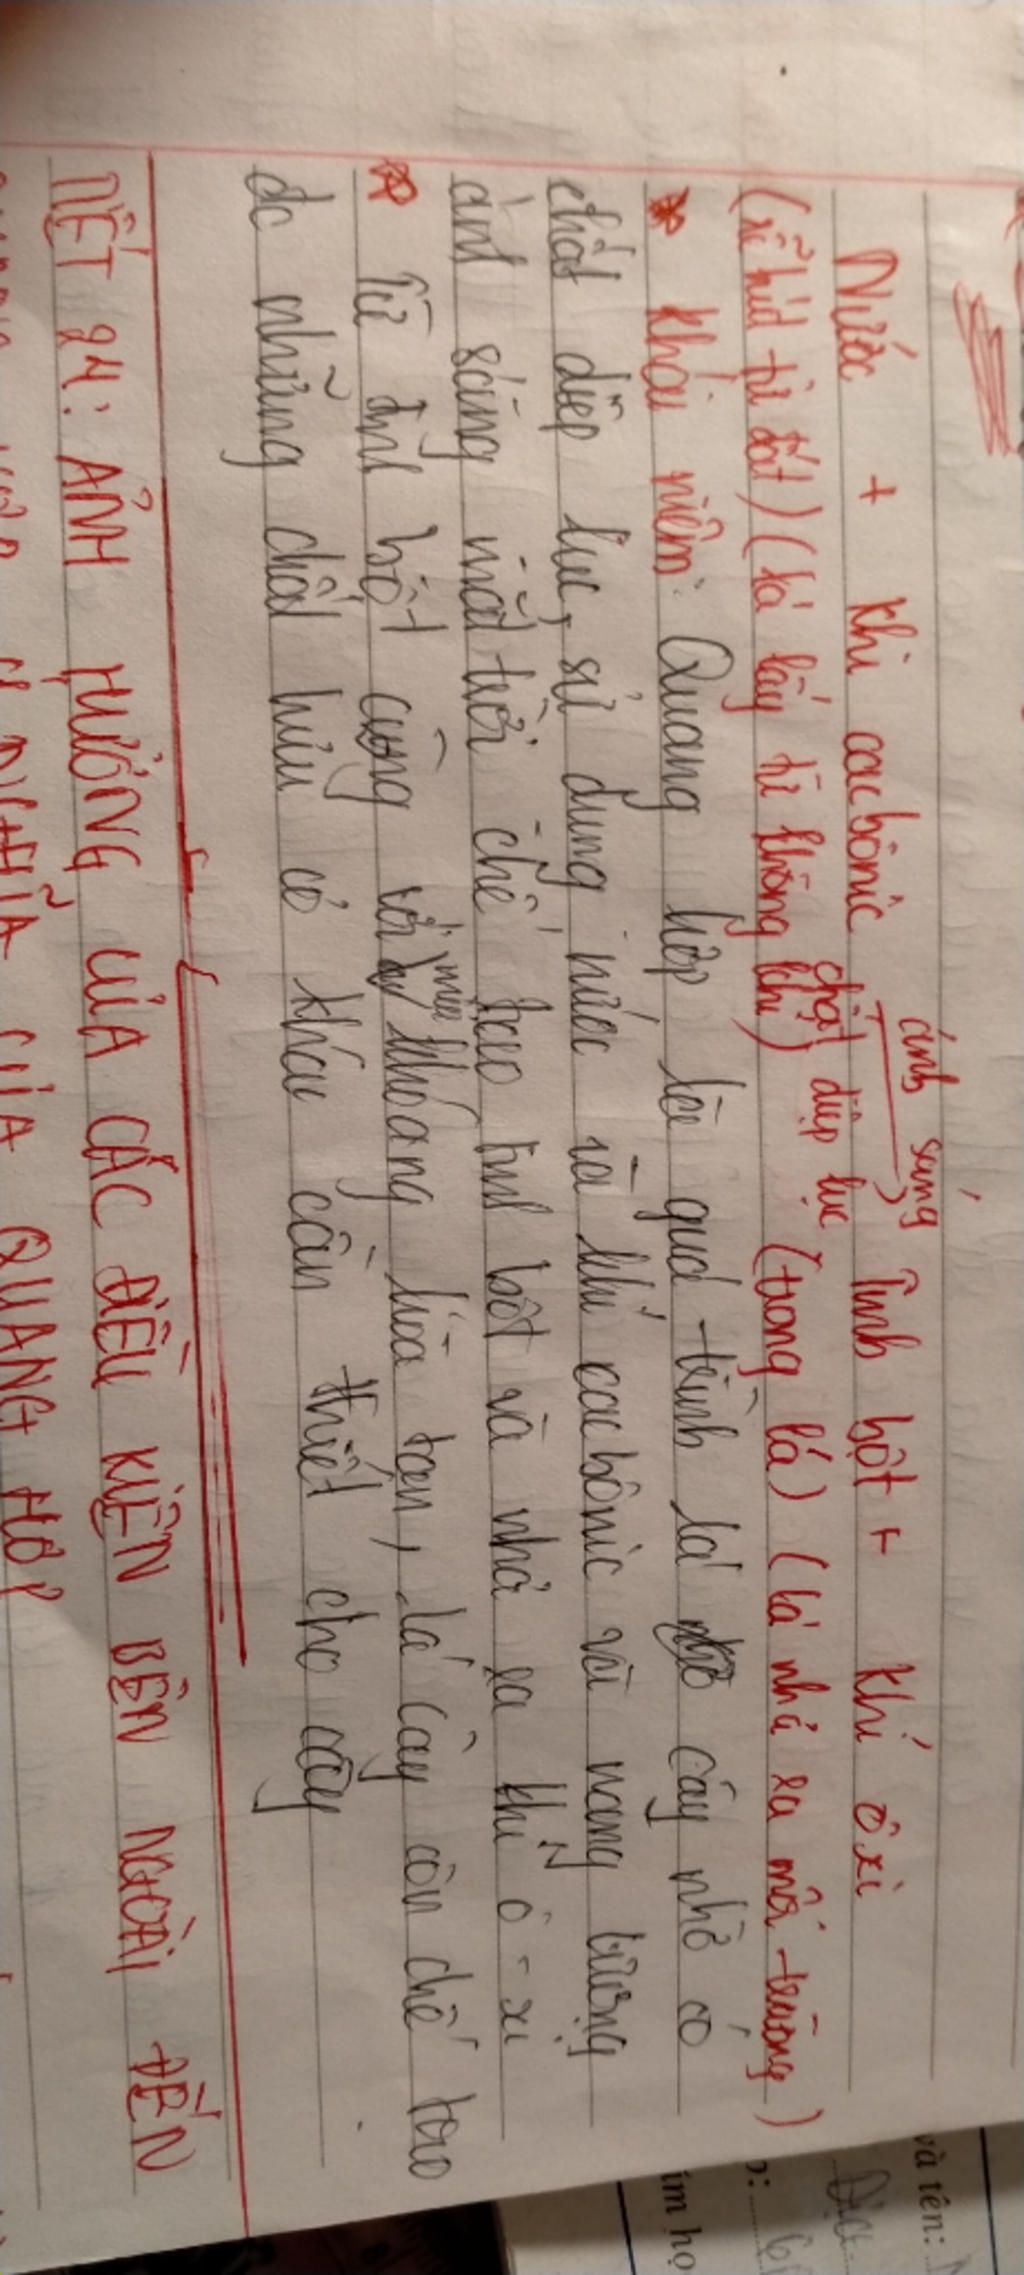 ánh sáng
Nước + khí cacbônic → Tinh bột + khí ôxi
chất diệp lục
(rễ hút từ đất) (lá lấy từ không khí) (trong lá) (lá nhả ra môi trường)
* Khái niệm: Quang hợp là quá trình lá cây nhờ có
chất diệp lục, sử dụng nước và khí cacbônic và năng lượng
ánh sáng mặt trời chế tạo tinh bột và nhả ra khí ô-xi
* Từ tinh bột cùng với muối khoáng hòa tan, lá cây còn chế tạo
đc những chất hữu cơ khác cần thiết cho cây
TIẾT 24: ẢNH HƯỞNG CỦA CÁC ĐIỀU KIỆN BÊN NGOÀI ĐẾN
QUANG HỢP Ý NGHĨA CỦA QUANG HỢP
và tên: